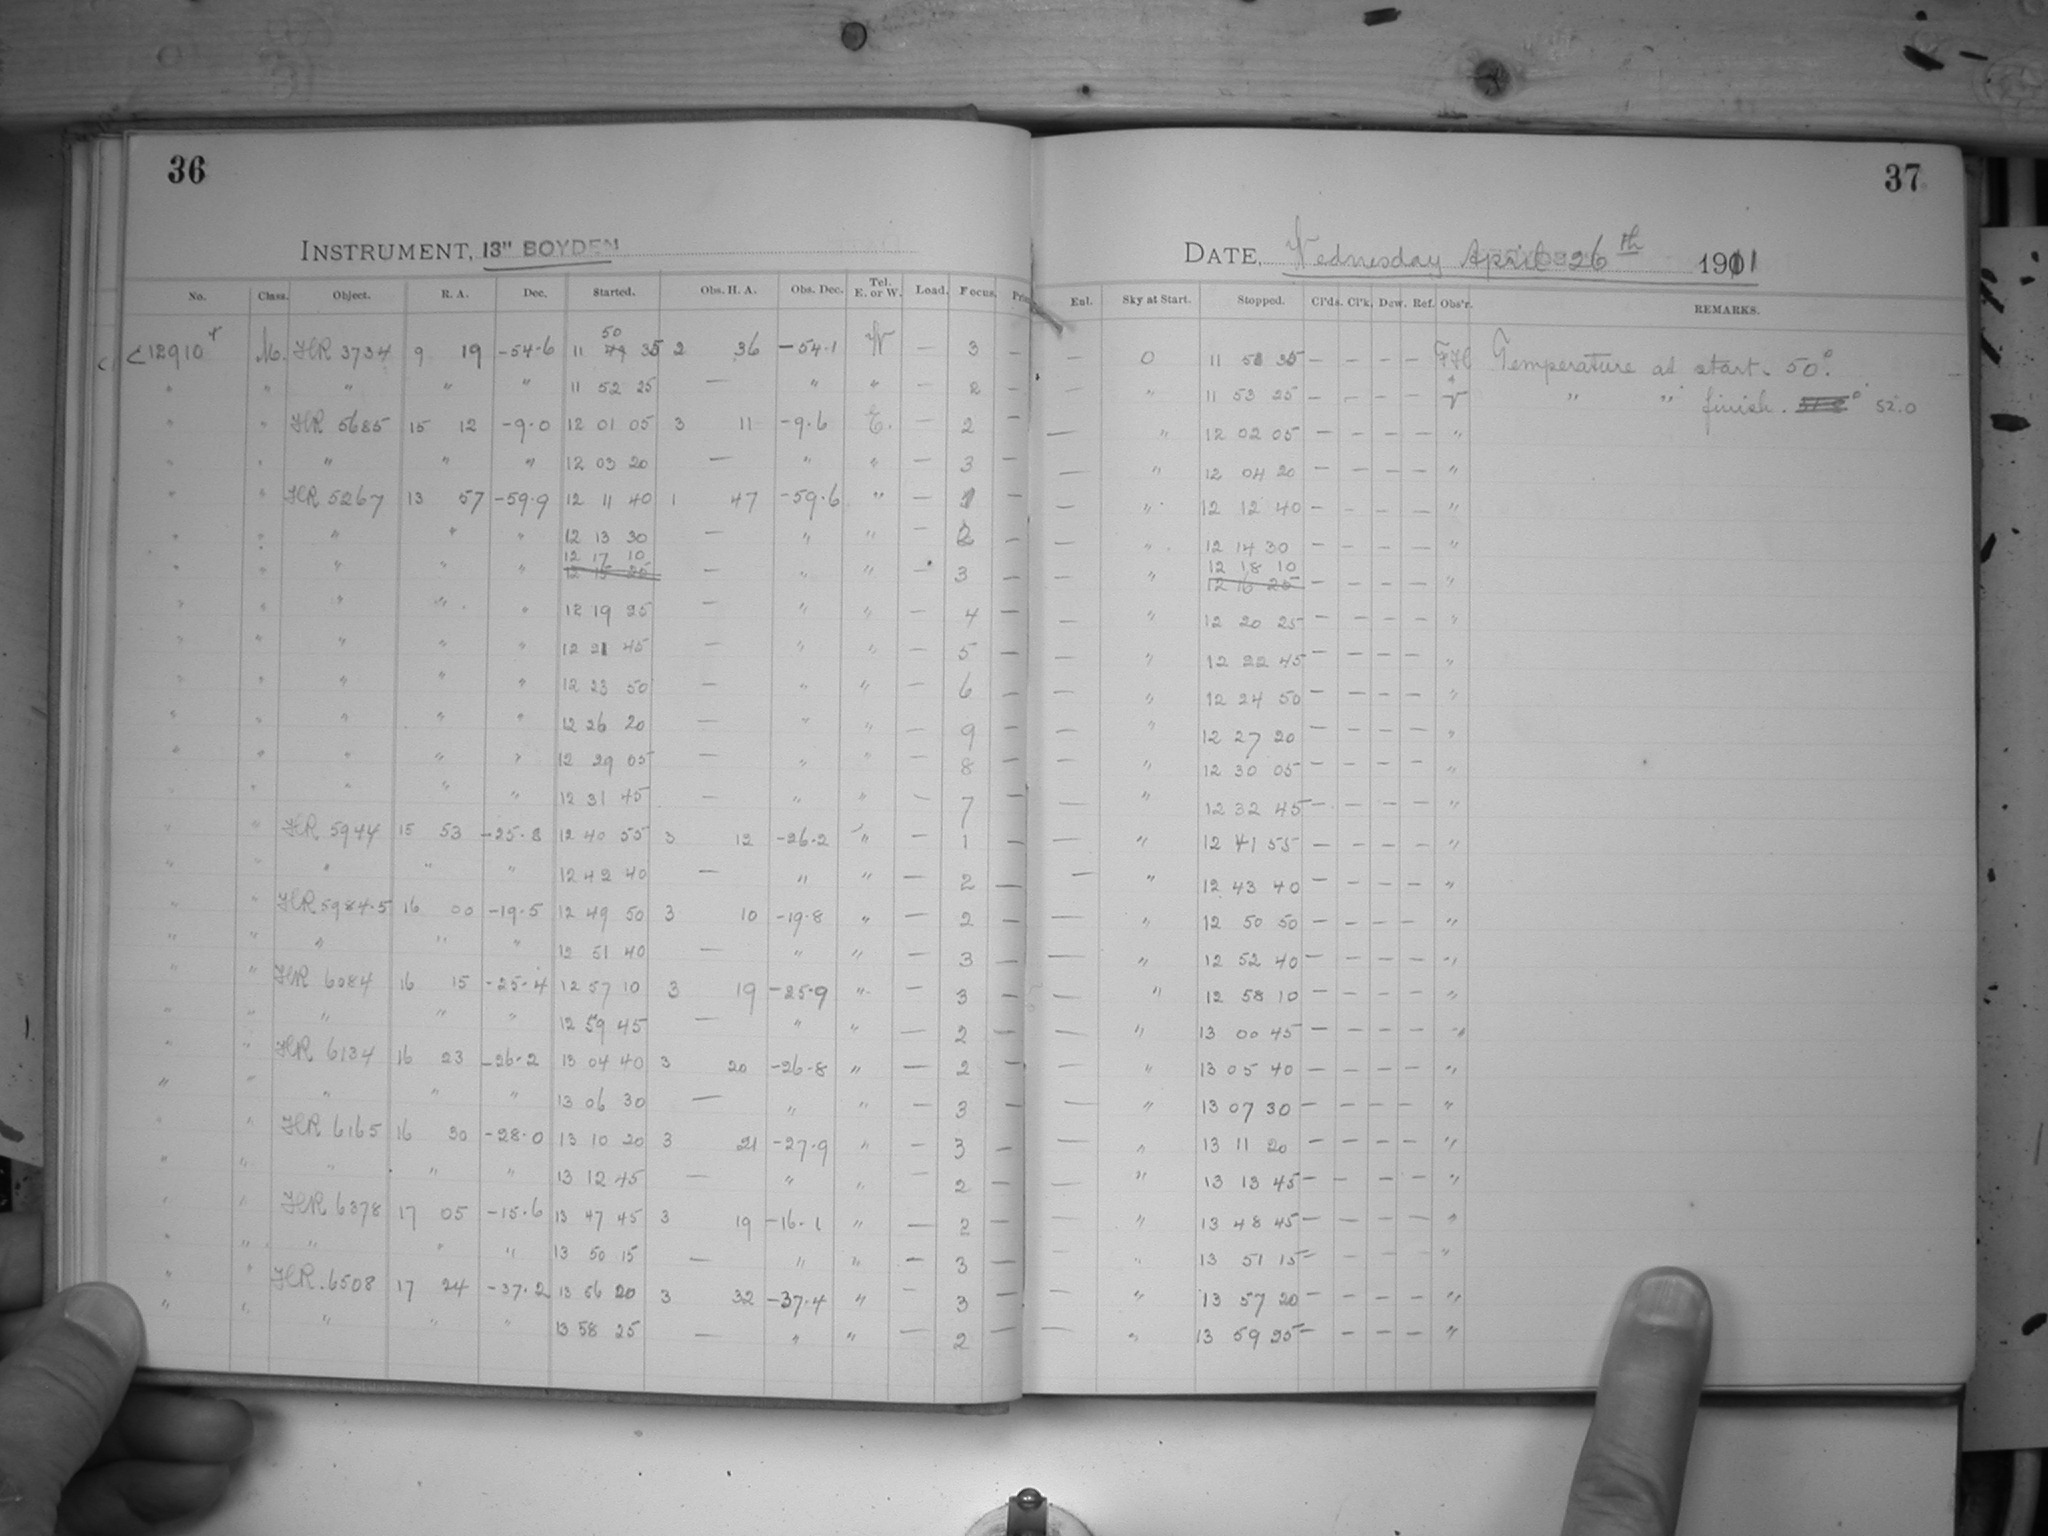 36
INSTRUMENT, 13" BOYDEN
No. Class. Object. R. A. Dec. Started. Obs. H. A. Obs. Dec. Tel. E. or W. Load. Focus.
C 12910 M. HR 3734 9 19 -54.6 11 50 35 2 36 -54.1 W — 3 —
" " " " " 11 52 25 — " " — 2 —
" " HR 5685 15 12 -9.0 12 01 05 3 11 -9.6 E. — 2 —
" " " " " 12 03 20 — " " — 3 —
" " HR 5267 13 57 -59.9 12 11 40 1 47 -59.6 " — 1 —
" " " " " 12 13 30 — " " — 2 —
12 17 10
" " " " " 12 15 25 — " " — 3 —
" " " " " 12 19 25 — " " — 4 —
" " " " " 12 21 45 — " " — 5 —
" " " " " 12 23 50 — " " — 6 —
" " " " " 12 26 20 — " " — 9 —
" " " " " 12 29 05 — " " — 8 —
" " " " " 12 31 45 — " " — 7 —
" " HR 5944 15 53 -25.8 12 40 55 3 12 -26.2 " — 1 —
" " " " " 12 42 40 — " " — 2 —
" " HR 5984.5 16 00 -19.5 12 49 50 3 10 -19.8 " — 2 —
" " " " " 12 51 40 — " " — 3 —
" " HR 6084 16 15 -25.4 12 57 10 3 19 -25.9 " — 3 —
" " " " " 12 59 45 — " " — 2 —
" " HR 6134 16 23 -26.2 13 04 40 3 20 -26.8 " — 2 —
" " " " " 13 06 30 — " " — 3 —
" " HR 6165 16 30 -28.0 13 10 20 3 21 -27.9 " — 3 —
" " " " " 13 12 45 — " " — 2 —
" " HR 6378 17 05 -15.6 13 47 45 3 19 -16.1 " — 2 —
" " " " " 13 50 15 — " " — 3 —
" " HR. 6508 17 24 -37.2 13 56 20 3 32 -37.4 " — 3 —
" " " " " 13 58 25 — " " — 2 —
37
DATE, Wednesday April 26th 1911
Enl. Sky at Start. Stopped. Cl'ds. Cl'k. Dew. Ref. Obs'r. REMARKS.
— 0 11 51 35 — — — — Temperature at start. 50.°
— " 11 53 25 — — — — " " finish. 52.0
— " 12 02 05 — — — — "
— " 12 04 20 — — — — "
— " 12 12 40 — — — — "
— " 12 14 30 — — — — "
12 18 10
— " 12 16 25 — — — — "
— " 12 20 25 — — — — "
— " 12 22 45 — — — — "
— " 12 24 50 — — — — "
— " 12 27 20 — — — — "
— " 12 30 05 — — — — "
— " 12 32 45 — — — — "
— " 12 41 55 — — — — "
— " 12 43 40 — — — — "
— " 12 50 50 — — — — "
— " 12 52 40 — — — — "
— " 12 58 10 — — — — "
— " 13 00 45 — — — — "
— " 13 05 40 — — — — "
— " 13 07 30 — — — — "
— " 13 11 20 — — — — "
— " 13 13 45 — — — — "
— " 13 48 45 — — — — "
— " 13 51 15 — — — — "
— " 13 57 20 — — — — "
— " 13 59 25 — — — — "